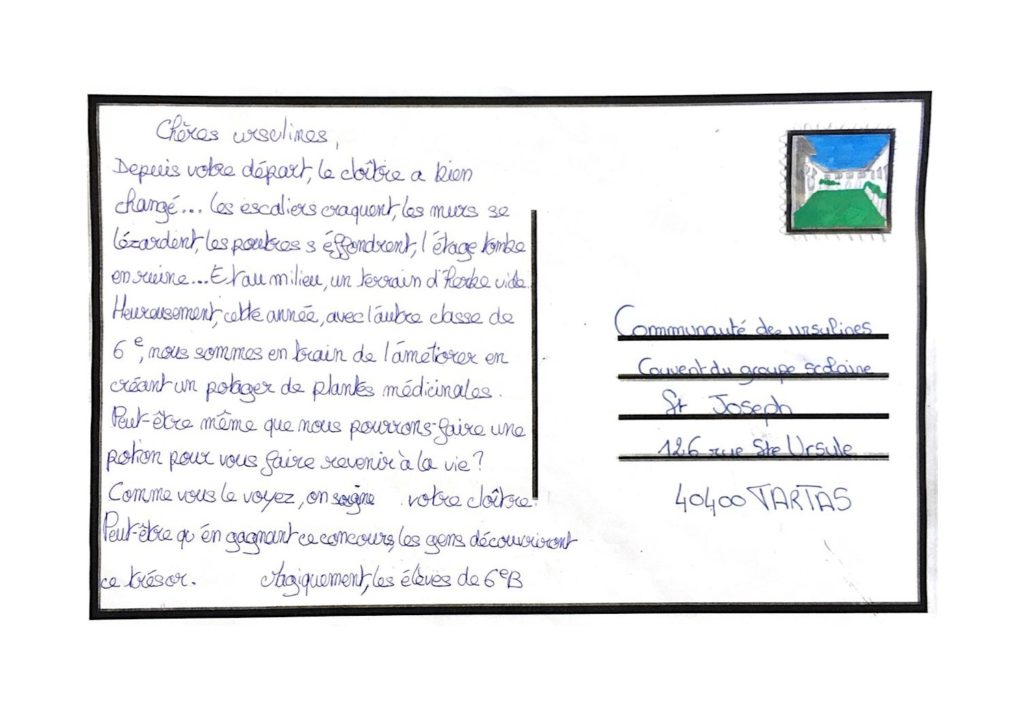 Chères ursulines,
Depuis votre départ, le cloître a bien
changé... les escaliers craquent, les murs se
lézardent, les poutres s'éffondrent, l'étage tombe
en ruine... Et au milieu, un terrain d'herbe vide.
Heureusement, cette année, avec l'autre classe de
6e, nous sommes en train de l'améliorer en
créant un potager de plantes médicinales.
Peut-être même que nous pourrons faire une
potion pour vous faire revenir à la vie?
Comme vous le voyez, on soigne votre cloître.
Peut-être qu'en gagnant ce concours, les gens découvriront
ce trésor. Magiquement, les élèves de 6eB
Communauté des ursulines
Couvent du groupe scolaire
St Joseph
126 rue Ste Ursule
40400 TARTAS